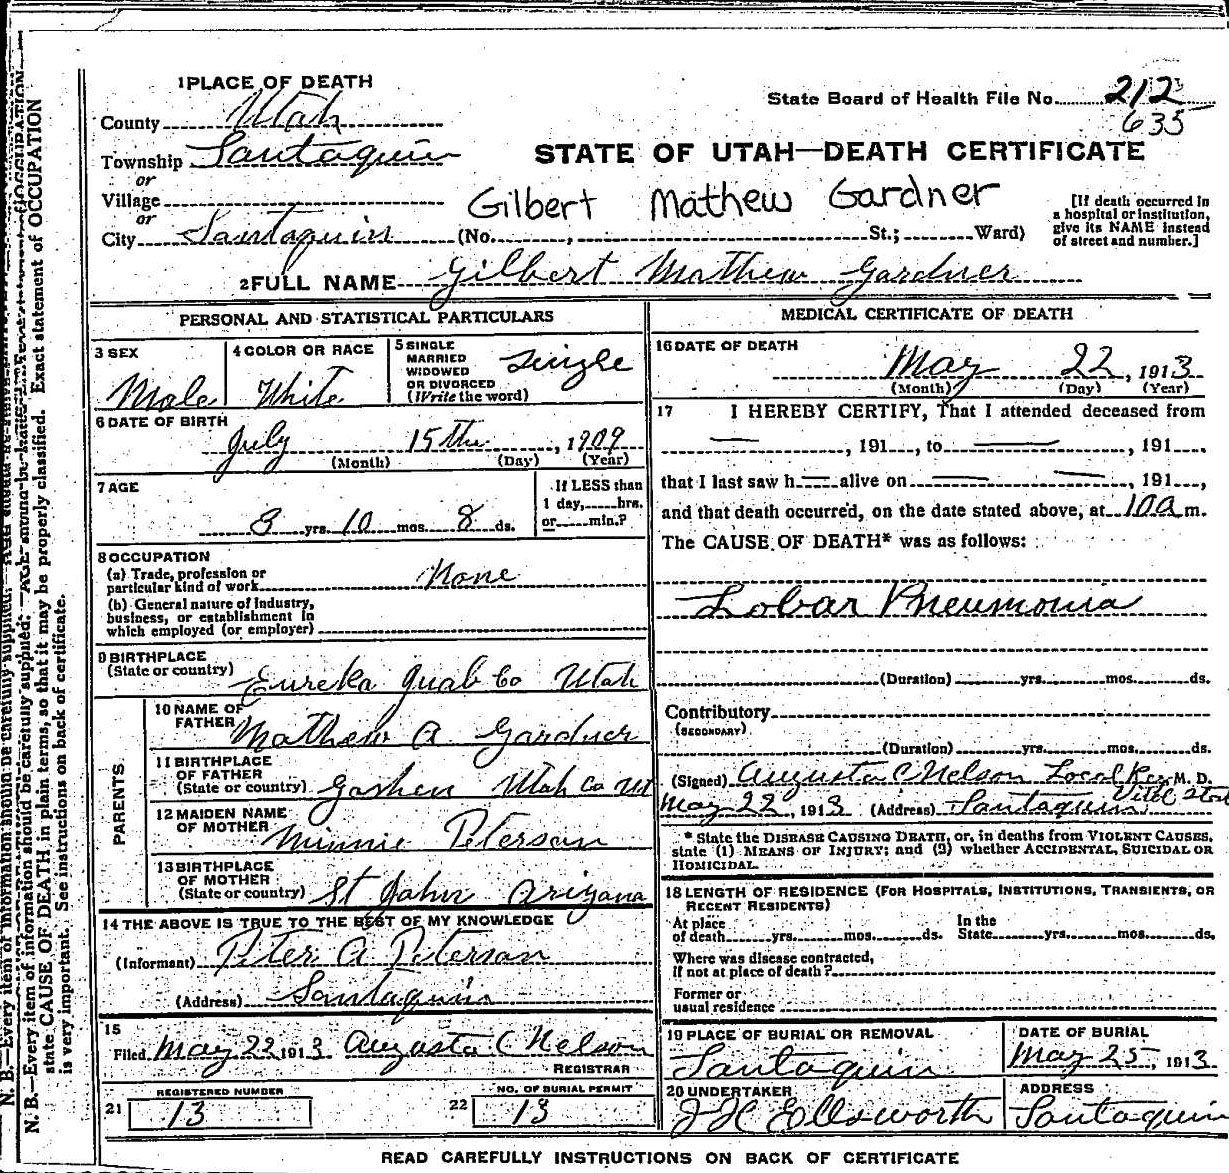 1 PLACE OF DEATH
County Utah
Township Santaquin
or
Village
or
City Santaquin (No. , St.; Ward)
State Board of Health File No. 212
635
STATE OF UTAH—DEATH CERTIFICATE
Gilbert Mathew Gardner
[If death occurred in
a hospital or institution,
give its NAME instead
of street and number.]
2 FULL NAME Gilbert Mathew Gardner
PERSONAL AND STATISTICAL PARTICULARS
3 SEX
Male
4 COLOR OR RACE
White
5 SINGLE
MARRIED
WIDOWED
OR DIVORCED
(Write the word)
Single
6 DATE OF BIRTH
July 15th, 1909
(Month) (Day) (Year)
7 AGE
3 yrs. 10 mos. 8 ds.
If LESS than
1 day, hrs.
or min.?
8 OCCUPATION
(a) Trade, profession or
particular kind of work None
(b) General nature of industry,
business, or establishment in
which employed (or employer)
9 BIRTHPLACE
(State or country) Eureka Juab Co Utah
PARENTS
10 NAME OF
FATHER Mathew A Gardner
11 BIRTHPLACE
OF FATHER
(State or country) Goshen Utah Co Ut
12 MAIDEN NAME
OF MOTHER Minnie Peterson
13 BIRTHPLACE
OF MOTHER
(State or country) St John Arizona
14 THE ABOVE IS TRUE TO THE BEST OF MY KNOWLEDGE
(Informant) Peter A Peterson
(Address) Santaquin
15
Filed May 22 1913 Augusta C Nelson
REGISTRAR
REGISTERED NUMBER
21 13
NO. OF BURIAL PERMIT
22 13
MEDICAL CERTIFICATE OF DEATH
16 DATE OF DEATH
May 22, 1913
(Month) (Day) (Year)
17 I HEREBY CERTIFY, That I attended deceased from
— , 191 , to — , 191 .
that I last saw h — alive on — , 191 ,
and that death occurred, on the date stated above, at 10 a m.
The CAUSE OF DEATH* was as follows:
Lobar Pneumonia
(Duration) yrs. mos. ds.
Contributory
(SECONDARY)
(Duration) yrs. mos. ds.
(Signed) Augusta C Nelson Local Reg M. D.
Vital Stat
May 22, 1913 (Address) Santaquin
* State the DISEASE CAUSING DEATH, or, in deaths from VIOLENT CAUSES,
state (1) MEANS OF INJURY; and (2) whether ACCIDENTAL, SUICIDAL OR
HOMICIDAL.
18 LENGTH OF RESIDENCE (FOR HOSPITALS, INSTITUTIONS, TRANSIENTS, OR
RECENT RESIDENTS)
At place
of death yrs. mos. ds.
In the
State yrs. mos. ds.
Where was disease contracted,
if not at place of death?
Former or
usual residence
19 PLACE OF BURIAL OR REMOVAL
Santaquin
DATE OF BURIAL
May 25, 1913
20 UNDERTAKER
J H Ellsworth
ADDRESS
Santaquin
READ CAREFULLY INSTRUCTIONS ON BACK OF CERTIFICATE
N. B.—Every item of information should be carefully supplied. AGE should be stated EXACTLY. Exact statement of OCCUPATION
state CAUSE OF DEATH in plain terms, so that it may be properly classified.
is very important. See instructions on back of certificate.